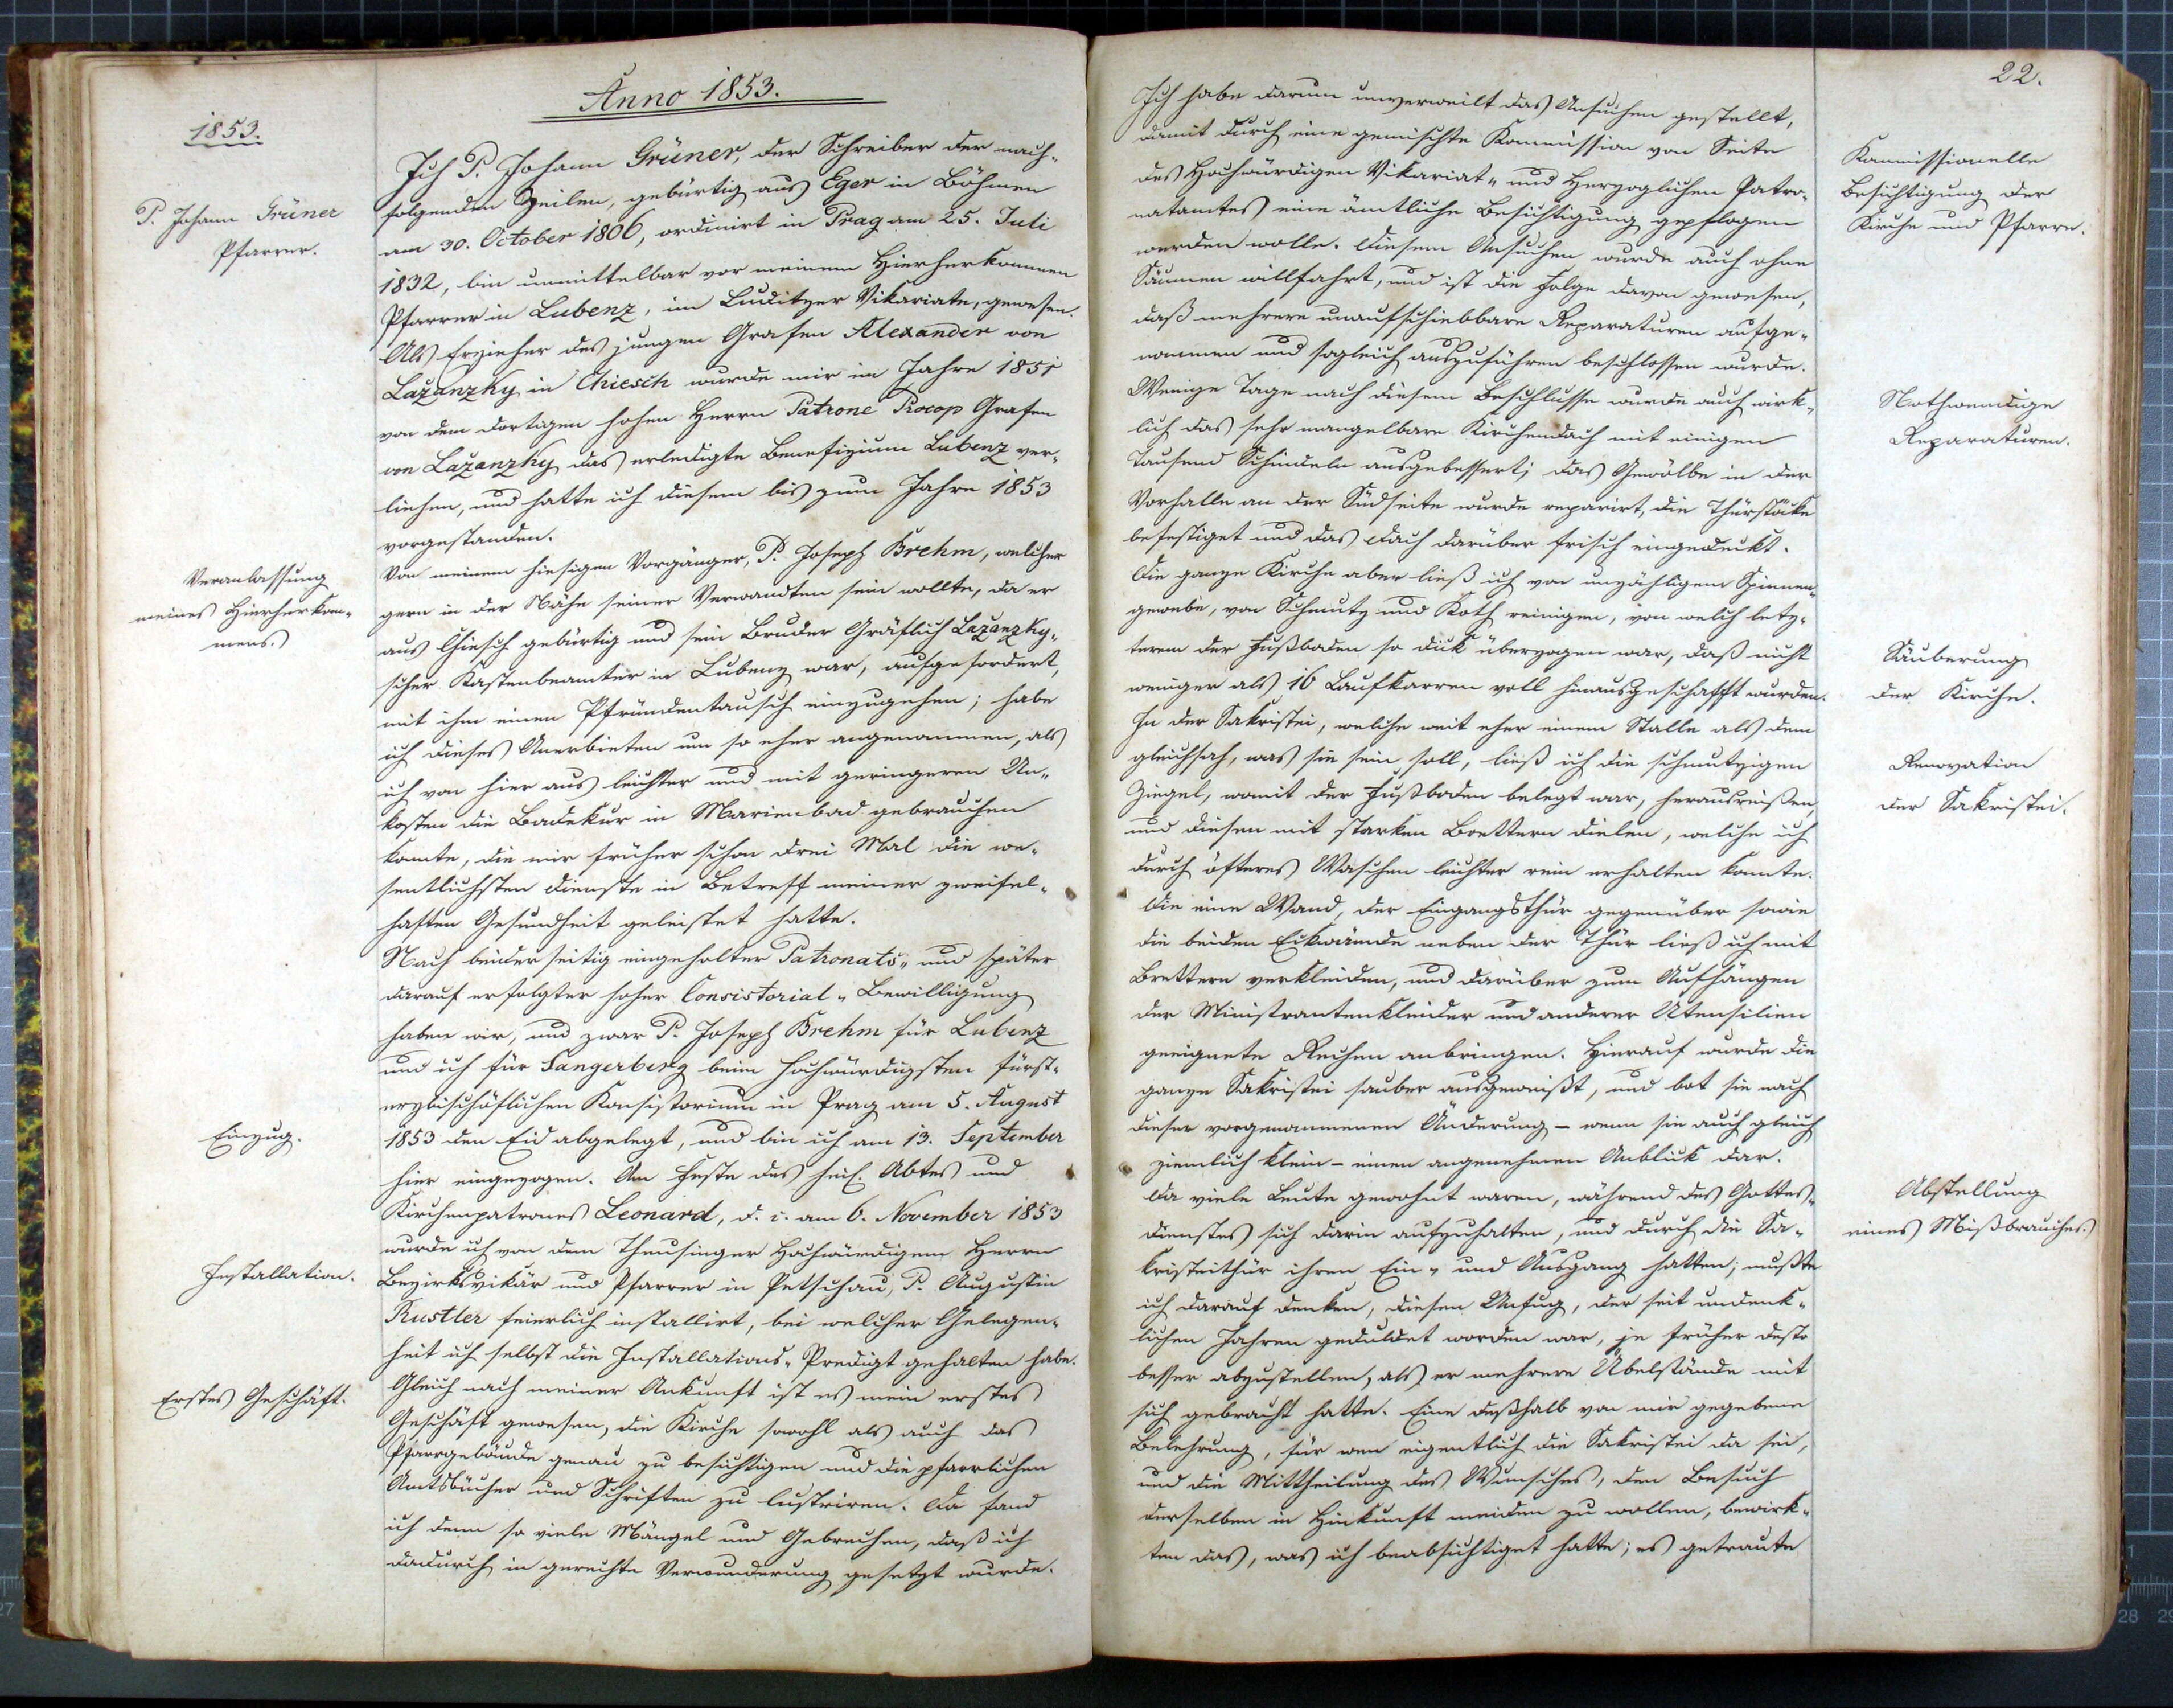 Anno 1853.
1853.
Ich P. Johann Grüner, der Schreiber der nach-
folgenden Zeilen, gebürtig aus Eger in Böhmen
P. Johann Grüner
Pfarrer.
am 30. October 1806, ordinirt in Prag am 25. Juli
1832, bin unmittelbar vor meinem Hierherkommen
Pfarrer in Lubenz, im Luditzer Vikariate, gewesen.
Als Erzieher des jungen Grafen Alexander von
Lažanzky in Chiesch wurde mir im Jahre 1851
von dem dortigen hohen Herrn Patrone Procop Grafen
von Lažanzky das erledigte Benefizium Lubenz ver-
liehen, und hatte ich diesem bis zum Jahre 1853
vorgestanden.
Veranlassung
meines Hierherkom-
mens.
Von meinem hiesigen Vorgänger, P. Joseph Brehm, welcher
gern in der Nähe seiner Verwandten sein wollte, da er
aus Chiesch gebürtig und sein Bruder Gräflich Lažanzky-
scher Kastenbeamter in Lubenz war, aufgefordert,
mit ihm einen Pfründentausch einzugehen; habe
ich dieses Anerbieten um so eher angenommen, als
ich von hier aus leichter und mit geringeren Un-
kosten die Badekur in Marienbad gebrauchen
konnte, die mir früher schon drei Mal die we-
sentlichsten Dienste in Betreff meiner zweifel-
haften Gesundheit geleistet hatte.
Nach beiderseitig eingeholter Patronats- und später
darauf erfolgter hoher Consistorial-Bewilligung
haben wir, und zwar P. Joseph Brehm für Lubenz
und ich für Sangerberg beim hochwürdigsten fürst-
erzbischöflichen Konsistorium in Prag am 5. August
Einzug.
1853 den Eid abgelegt, und bin ich am 13. September
hier eingezogen. Am Feste des heil. Abtes und
Kirchenpatrones Leonard, d. i. am 6. November 1853
Installation.
wurde ich von dem Theusinger Hochwürdigen Herrn
Bezirksvikär und Pfarrer in Petschau, P. Augustin
Rustler feierlich installirt, bei welcher Gelegen-
heit ich selbst die Installations-Predigt gehalten habe.
Erstes Geschäft.
Gleich nach meiner Ankunft ist es mein erstes
Geschäft gewesen, die Kirche sowohl als auch das
Pfarrgebäude genau zu besichtigen und die pfarrlichen
Amtsbücher und Schriften zu lustriren. Da fand
ich denn so viele Mängel und Gebrechen, daß ich
dadurch in gerechte Verwunderung gesetzt wurde.
22.
Ich habe darum unverweilt das Ansuchen gestellt,
damit durch eine gemischte Kommission von Seite
des Hochwürdigen Vikariat- und Herzoglichen Patro-
natamtes eine ämtliche Besichtigung gepflogen
werden wolle. Diesem Ansuchen wurde auch ohne
Kommissionelle
Besichtigung der
Kirche und Pfarre.
Säumen willfahrt, und ist die Folge davon gewesen,
daß mehrere unaufschiebbare Reparaturen aufge-
nommen und sogleich auszuführen beschlossen wurde.
Wenige Tage nach diesem Beschlusse wurde auch wirk-
lich das sehr mangelbare Kirchendach mit einigen
Nothwendige
Reparaturen.
Tausend Schindeln ausgebessert; das Gewölbe in der
Vorhalle an der Südseite wurde reparirt, die Thürstöcke
befestiget und das Dach darüber frisch eingedeckt.
Die ganze Kirche aber ließ ich von unzähligem Spinnen-
gewebe, von Schmutz und Koth reinigen, von welch letz-
terem der Fußboden so dick überzogen war, daß nicht
weniger als 16 Laufkarren voll hinausgeschafft wurden.
Säuberung
der Kirche.
In der Sakristei, welche weit eher einem Stalle als dem
gleichsah, was sie sein soll, ließ ich die schmutzigen
Ziegel, womit der Fußboden belegt war, herausreißen,
und diesen mit starken Brettern dielen, welche ich
Renovation
der Sakristei.
durch öfteres Waschen leichter rein erhalten konnte.
Die eine Wand, der Eingangsthür gegenüber sowie
die beiden Eckwände neben der Thür ließ ich mit
Brettern verkleiden, und darüber zum Aufhängen
der Ministrantenkleider und anderer Utensilien
geeignete Rechen anbringen. Hierauf wurde die
ganze Sakristei sauber ausgeweißt, und bot sie nach
dieser vorgenommenen Änderung – wenn sie auch gleich
ziemlich klein – einen angenehmen Anblick dar.
Da viele Leute gewohnt waren, während des Gottes-
dienstes sich darin aufzuhalten, und durch die Sa-
Abstellung
eines Mißbrauches.
kristeithür ihren Ein- und Ausgang hatten; mußte
ich darauf denken, diesen Unfug, der seit undenk-
lichen Jahren geduldet worden war, je früher desto
besser abzustellen, als er mehrere Übelstände mit
sich gebracht hatte. Eine deßhalb von mir gegebene
Belehrung, für wen eigentlich die Sakristei da sei,
und die Mittheilung des Wunsches, den Besuch
derselben in Hinkunft meiden zu wollen, bewirk-
ten das, was ich beabsichtiget hatte; es getraute